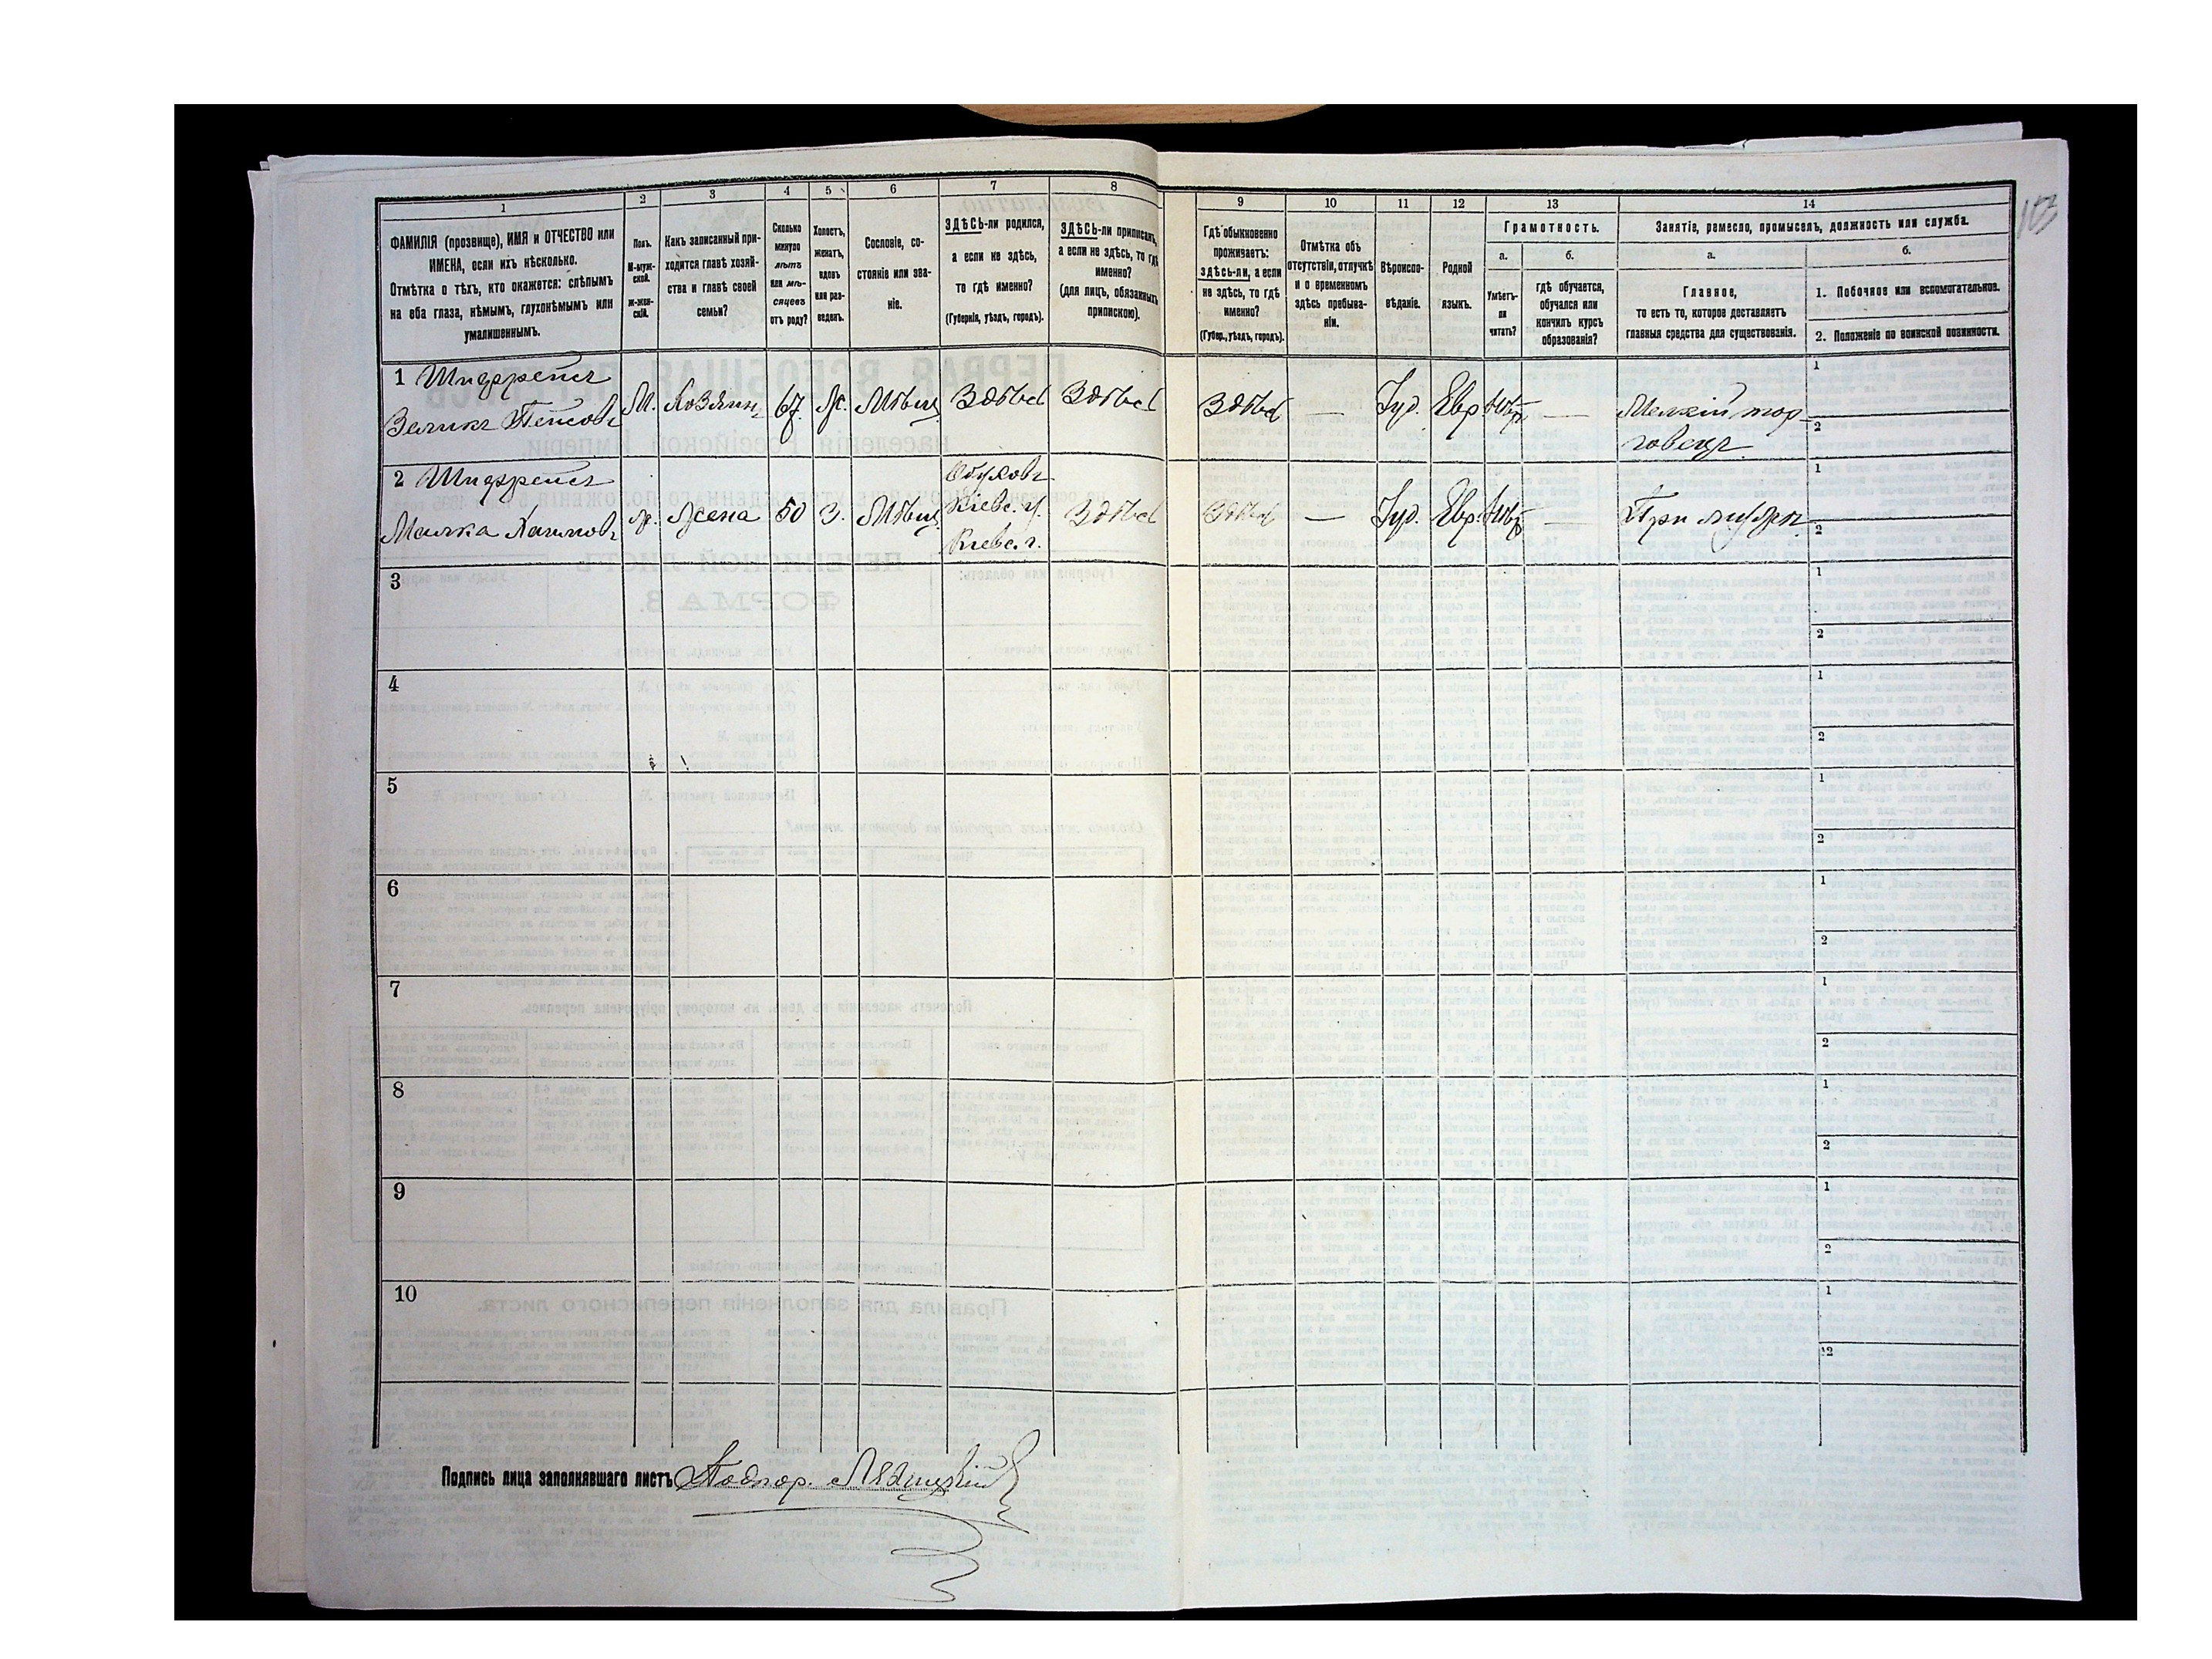 1 2 3 4 5 6 7 8 9 10 11 12 13 14
ФАМИЛІЯ (прозвище), ИМЯ и ОТЧЕСТВО или
ИМЕНА, если ихъ нѣсколько.
Отмѣтка о тѣхъ, кто окажется: слѣпымъ
на оба глаза, нѣмымъ, глухонѣмымъ или
умалишеннымъ.
Полъ.
М-муж-
ской.
Ж-жен-
скій.
Какъ записанный при-
ходится главѣ хозяй-
ства и главѣ своей
семьи?
Сколько
минуло
лѣтъ
или мѣ-
сяцевъ
отъ роду?
Холостъ,
женатъ,
вдовъ
или раз-
веденъ.
Сословіе, со-
стояніе или зва-
ніе.
ЗДѢСЬ-ли родился,
а если не здѣсь,
то гдѣ именно?
(Губернія, уѣздъ, городъ).
ЗДѢСЬ-ли приписанъ,
а если не здѣсь, то гдѣ
именно?
(для лицъ, обязанныхъ
припискою).
Гдѣ обыкновенно
проживаетъ:
здѣсь-ли, а если
не здѣсь, то гдѣ
именно?
(Губер., уѣздъ, городъ).
Отмѣтка объ
отсутствіи, отлучкѣ
и о временномъ
здѣсь пребыва-
ніи.
Вѣроиспо-
вѣданіе.
Родной
языкъ.
Грамотность.
а.
Умѣетъ-
ли
читать?
б.
гдѣ обучается,
обучался или
кончилъ курсъ
образованія?
Занятіе, ремесло, промыселъ, должность или служба.
а.
Главное,
то есть то, которое доставляетъ
главныя средства для существованія.
б.
1. Побочное или вспомогательное.
2. Положеніе по воинской повинности.
1
Зеликъ
М. Хозяинъ 67 Ж. Мѣщ. Здѣсь Здѣсь Здѣсь — Іуд. Евр. — Мелкій тор-
говецъ
1
2
2
Малка Хаимовъ
ж. жена 50 З. Мѣщ.
Обуховъ
Кіевс. у.
Кіевс. г.
Здѣсь Здѣсь — Іуд. Евр. — При мужѣ
1
2
3
1
2
4
1
2
5
1
2
6
1
2
7
1
2
8
1
2
9
1
2
10
1
2
Подпись лица заполнявшаго листъ Подпор.